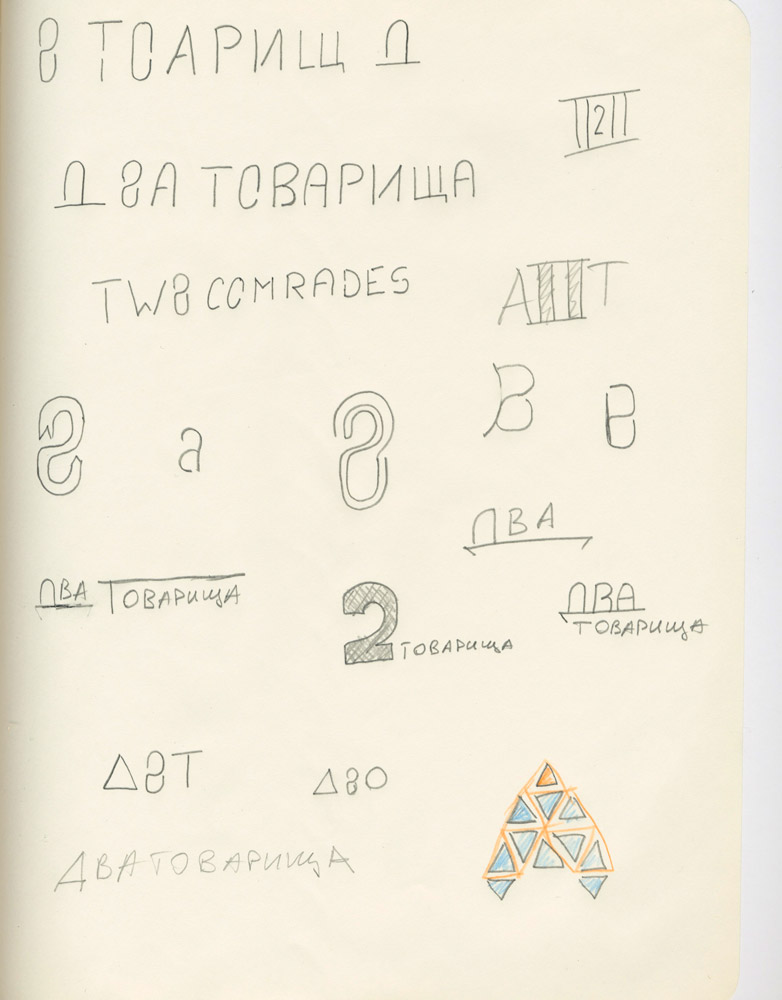 8 ТОАРИЩ Д
2
ДВА ТОВАРИЩА
TWO COMRADES
АШТ
а
В В
ДВА
ДВА ТОВАРИЩА
2 ТОВАРИЩА
ДВА
ТОВАРИЩА
Δ8Т
Δ8О
ДВА ТОВАРИЩА